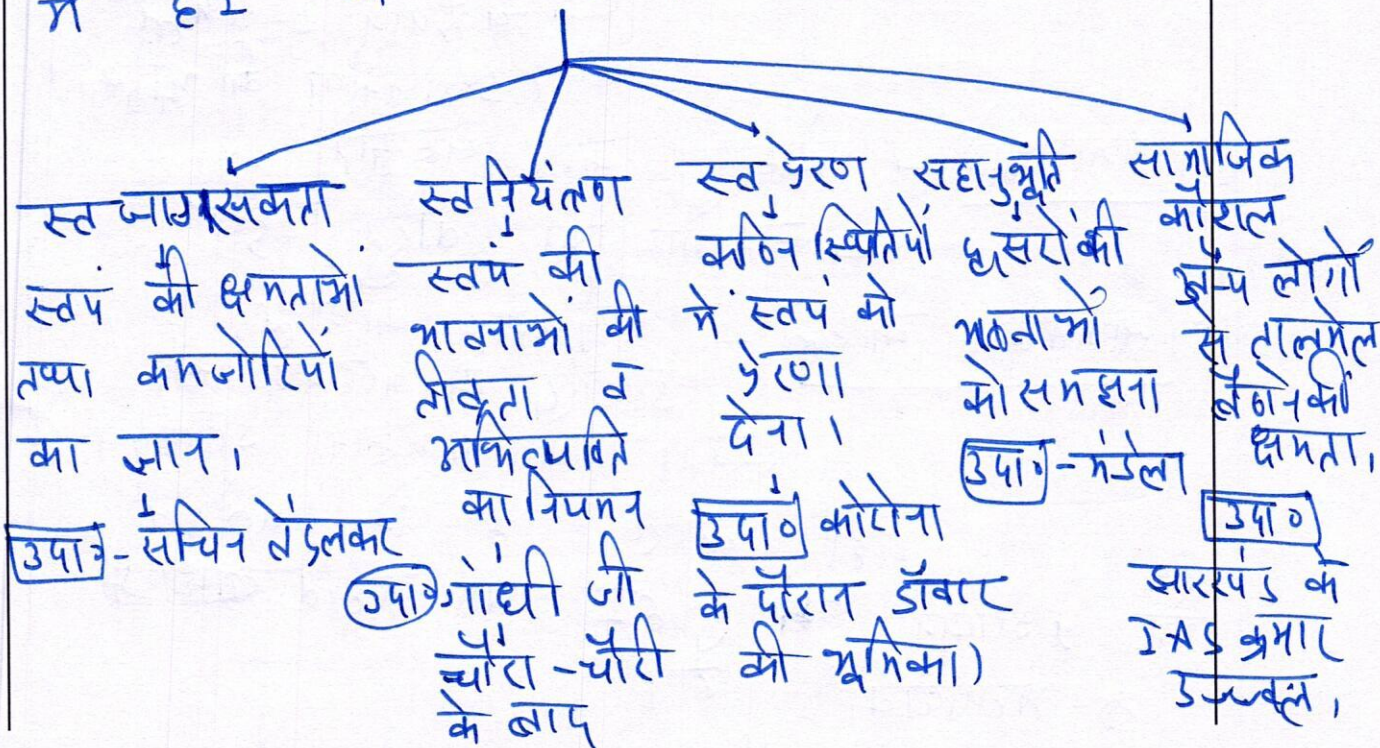 में है-
स्व जागरूकता
स्वयं की क्षमताओं
तथा कमजोरियों
का ज्ञान।
उदा०-सचिन तेंदुलकर
स्व नियंत्रण
स्वयं की
भावनाओं की
तीव्रता व
अभिव्यक्ति
का नियमन
उदा० गांधी जी
चौरा-चौरी
के बाद
स्व प्रेरण
कठिन स्थितियों
में स्वयं को
प्रेरणा
देना।
उदा० कोरोना
के दौरान डॉक्टर
की भूमिका)
सहानुभूति
दूसरों की
भावनाओं
को समझना
उदा०-मंडेला
सामाजिक
कौशल
अन्य लोगों
से तालमेल
बैठाने की
क्षमता।
उदा०
झारखंड के
IAS कुमार
उज्ज्वल।